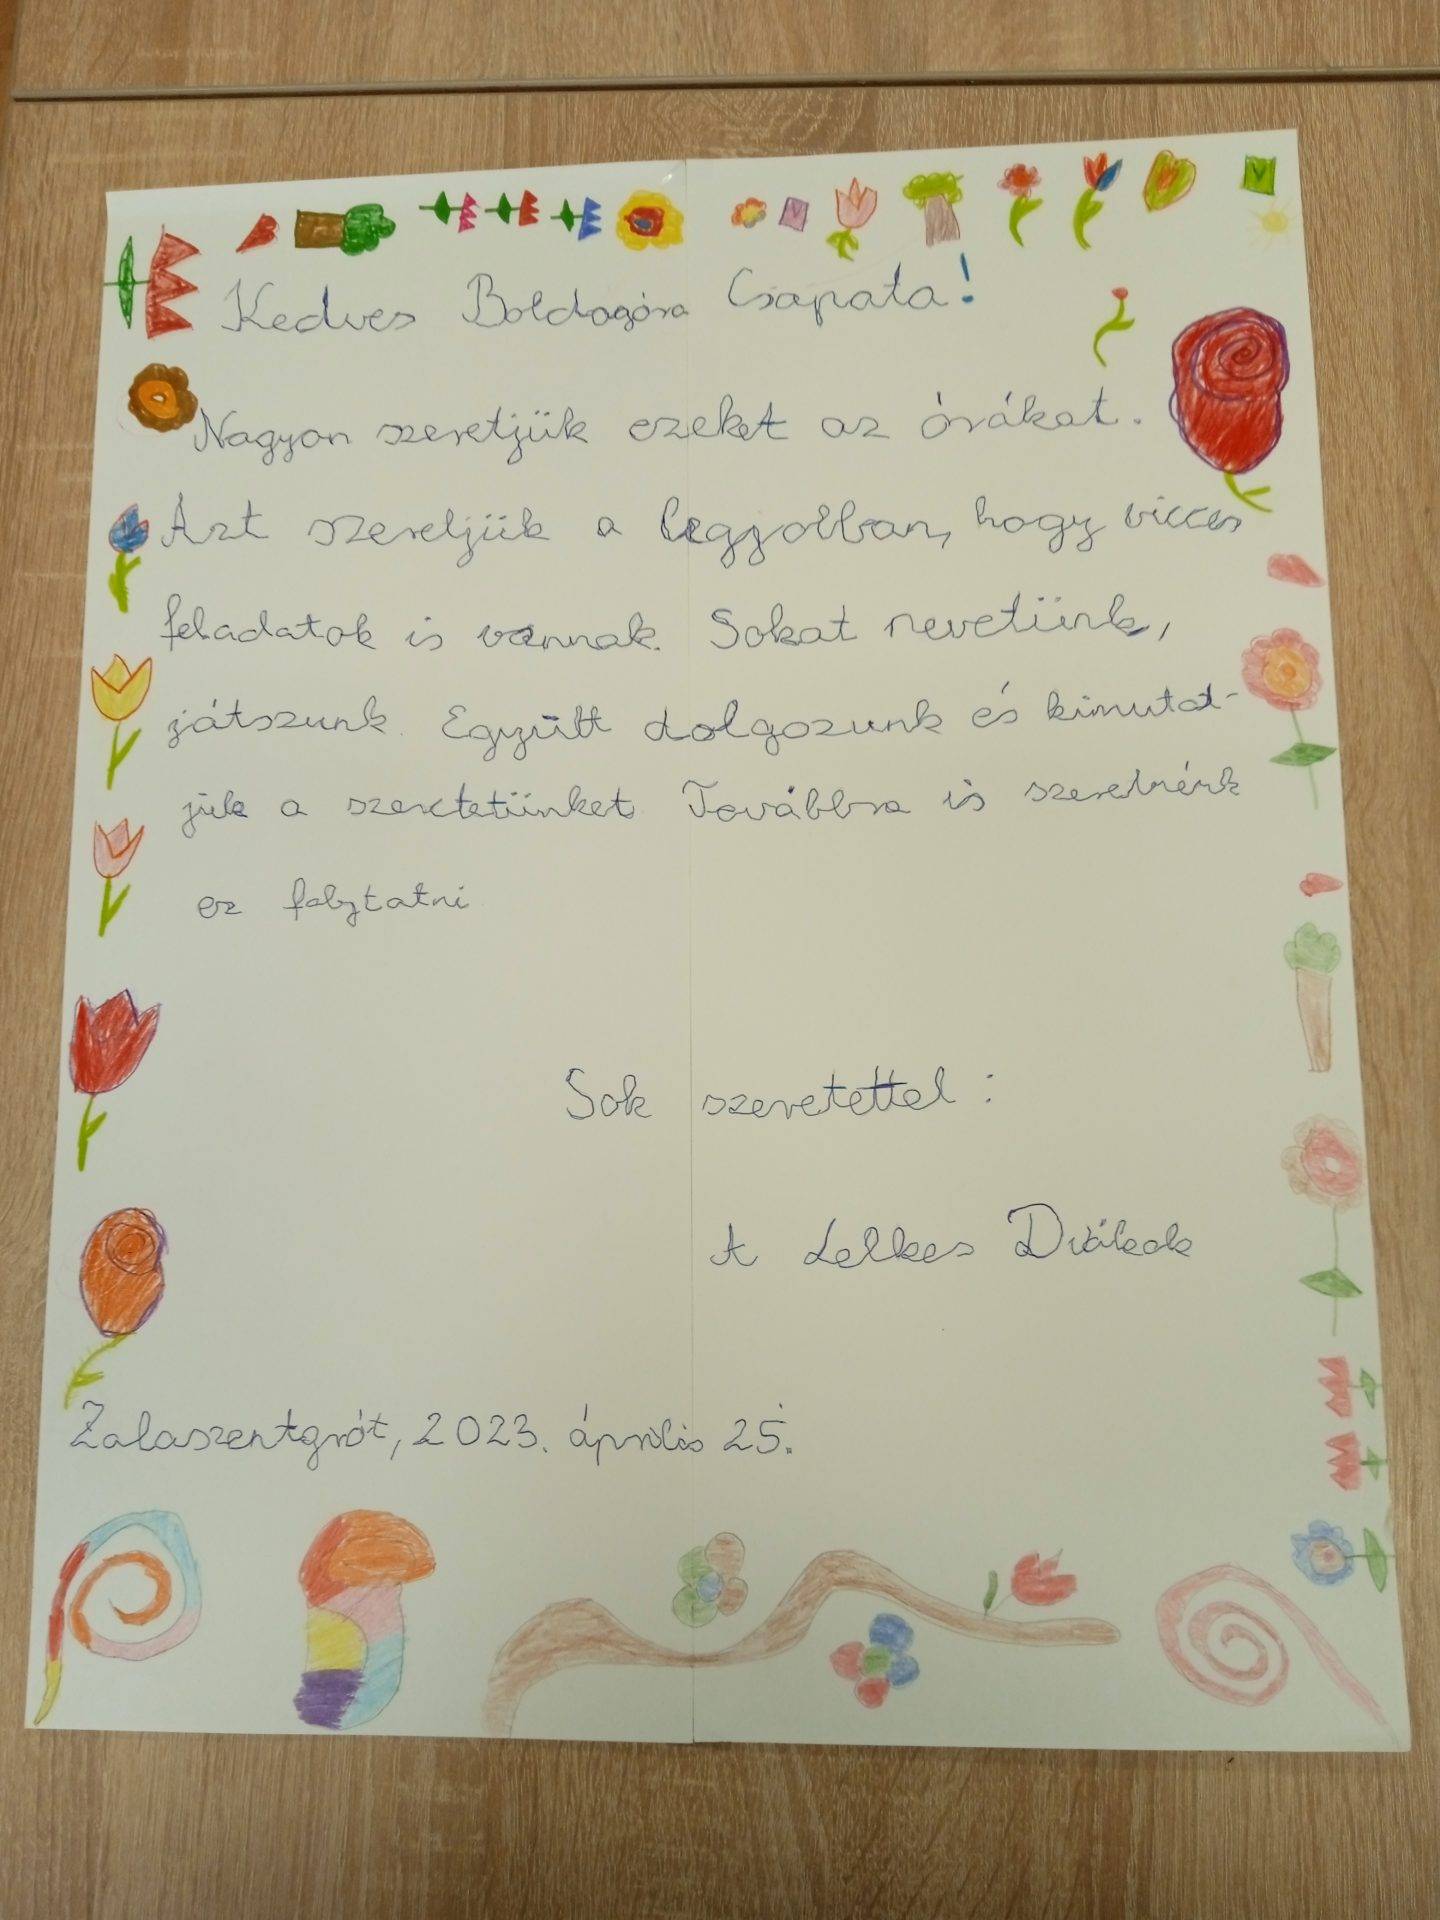 Kedves Boldogóra Csapata!
Nagyon szeretjük ezeket az órákat.
Azt szeretjük a legjobban, hogy vicces
feladatok is vannak. Sokat nevetünk,
játszunk. Együtt dolgozunk és kimutat-
juk a szeretetünket. Továbbra is szeretnénk
ez folytatni
Sok szeretettel:
A Lelkes Diákok
Zalaszentgrót, 2023. április 25.